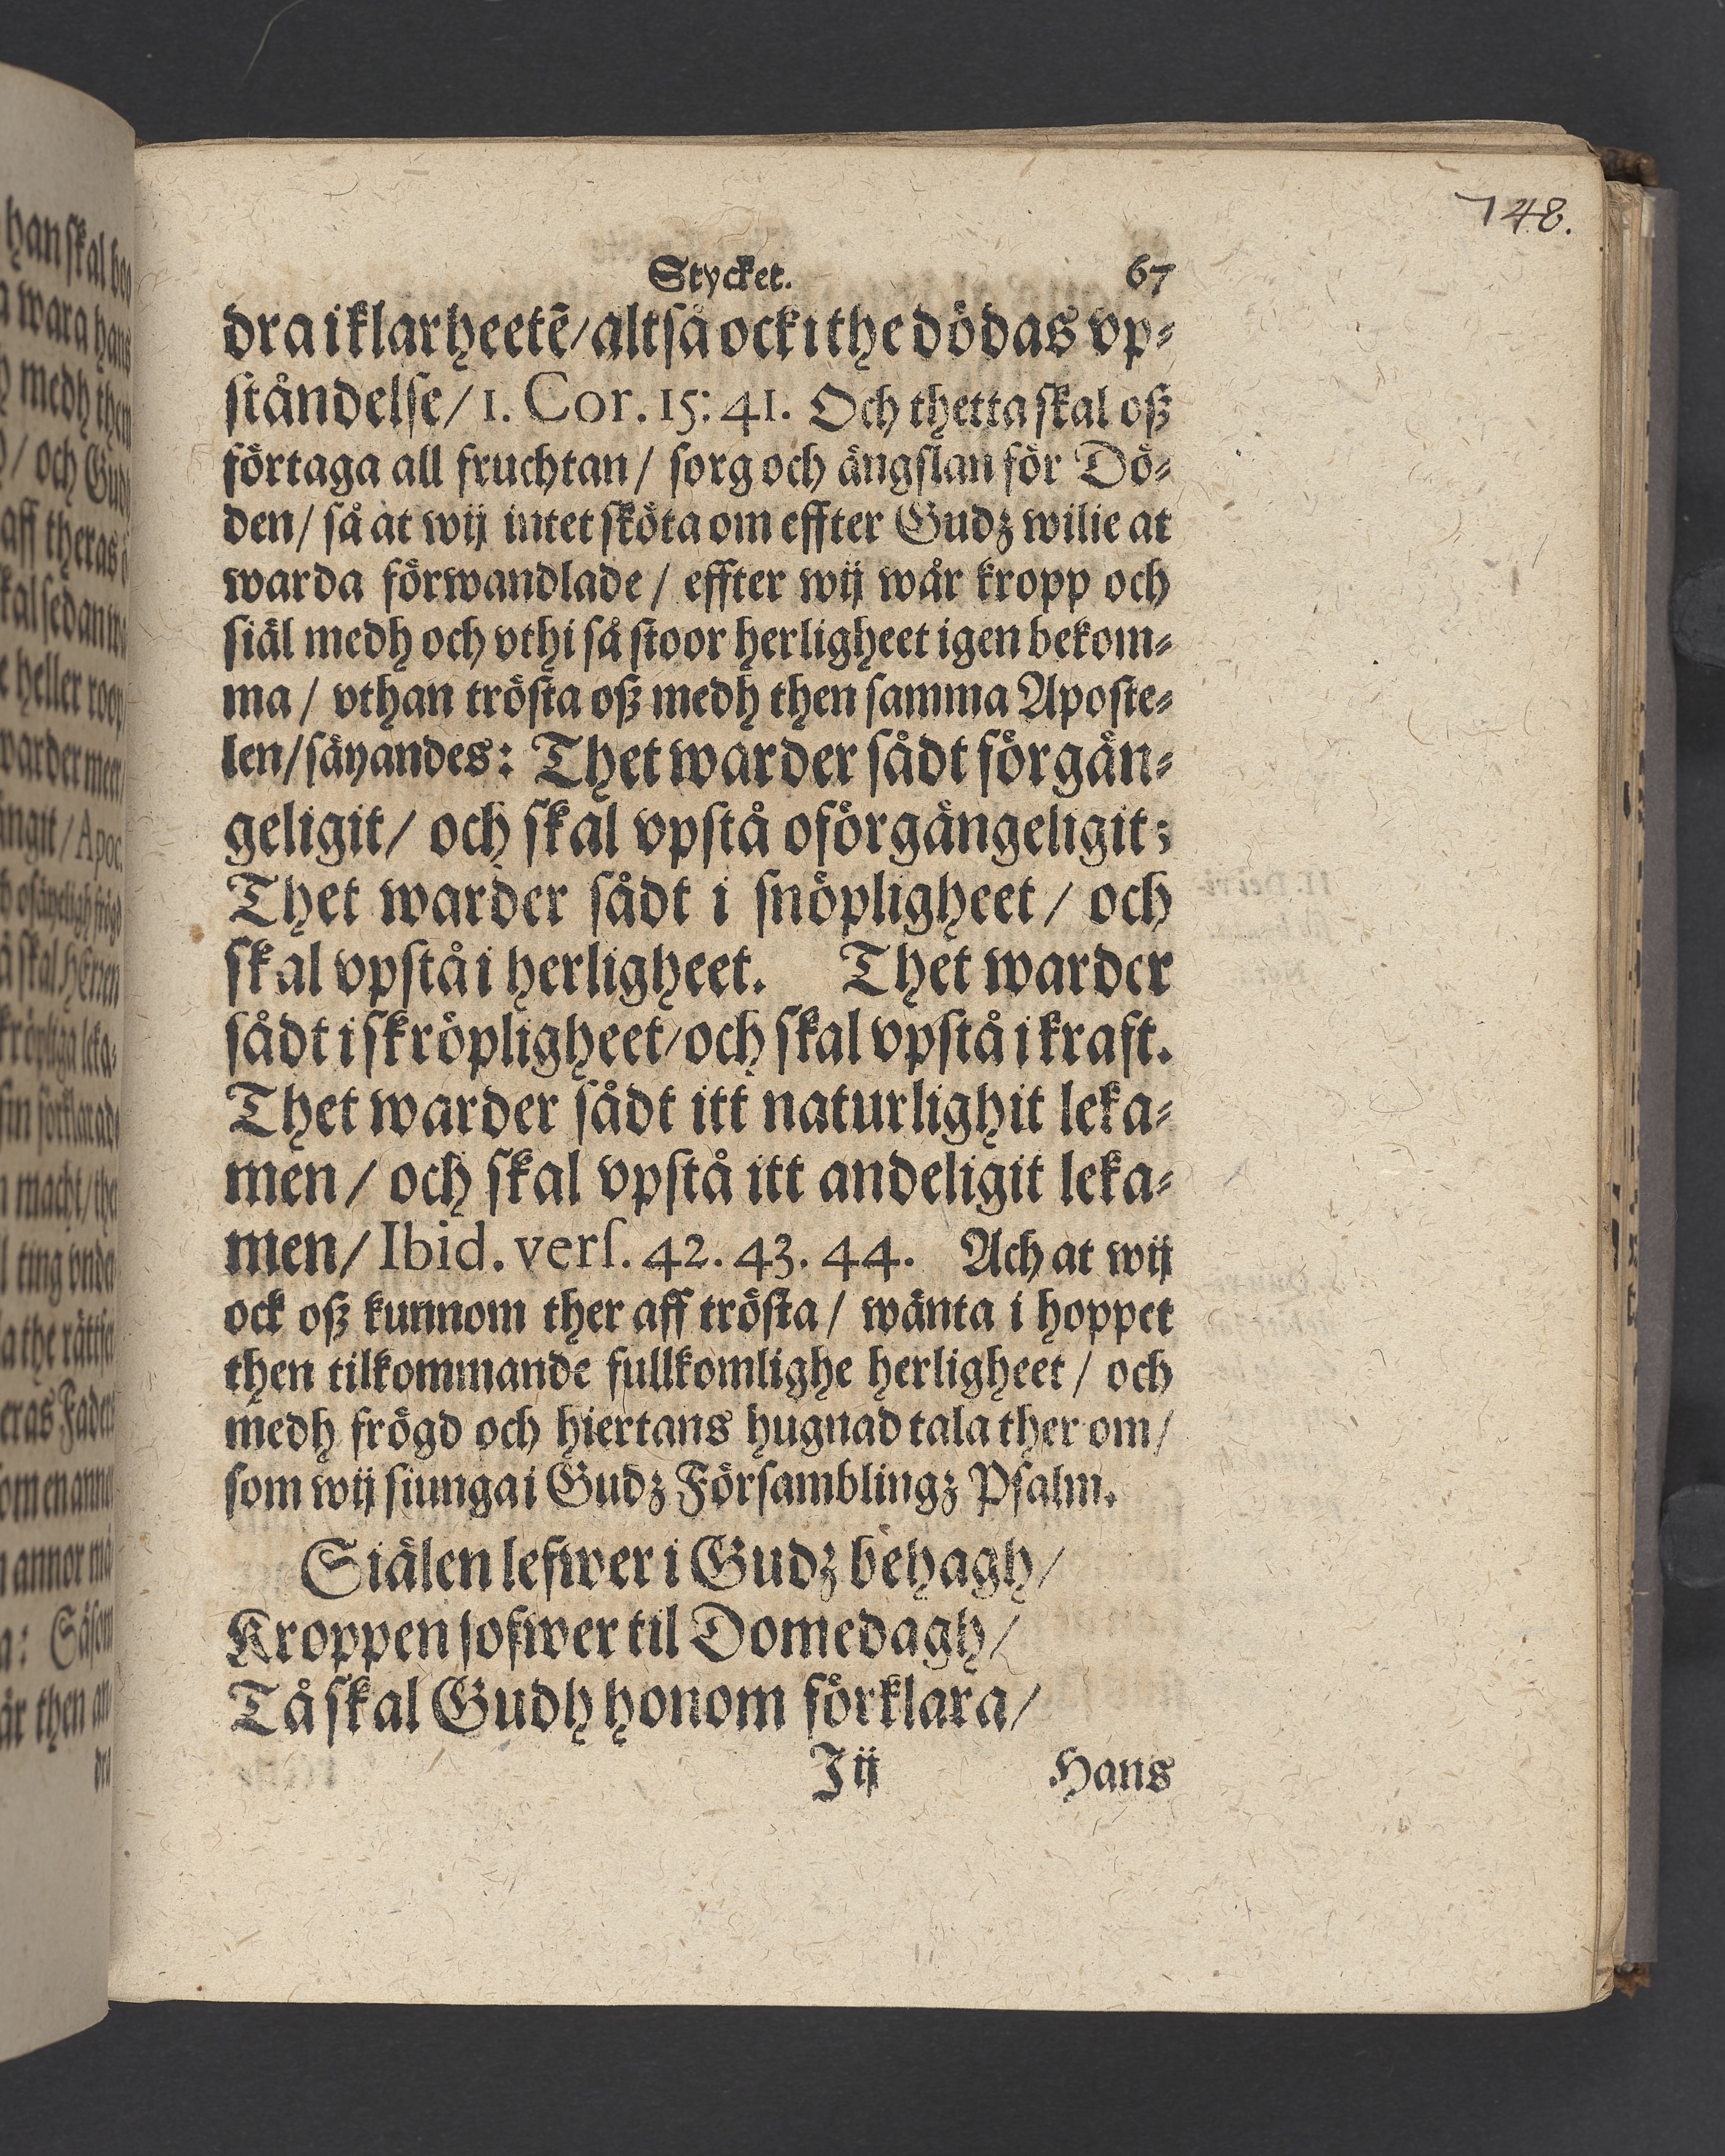 148.
Stycket. 67
dra i klarheetē/ altså ock i the dödas vp⸗
ståndelse/ 1. Cor. 15: 41. Och thetta skal oß
förtaga all fruchtan/ sorg och ängslan för Dö⸗
den/ så at wij intet sköta om effter Gudz wilie at
warda förwandlade/ effter wij wår kropp och
siäl medh och vthi så stoor herligheet igen bekom⸗
ma/ vthan trösta oß medh then samma Aposte⸗
len/ säyandes: Thet warder sådt förgän⸗
geligit/ och skal vpstå oförgängeligit;
Thet warder sådt i snöpligheet/ och
skal vpstå i herligheet. Thet warder
sådt i skröpligheet/ och skal vpstå i kraft.
Thet warder sådt itt naturlighit leka⸗
men/ och skal vpstå itt andeligit leka⸗
men/ Ibid. verſ. 42. 43. 44. Ach at wij
ock oß kunnom ther aff trösta/ wänta i hoppet
then tilkommande fullkomlighe herligheet/ och
medh frögd och hiertans hugnad tala ther om/
som wij siunga i Gudz Försambling⁊ Psalm.
Siälen lefwer i Gudz behagh/
Kroppen sofwer til Domedagh/
Tå skal Gudh honom förklara/
J ij Hans